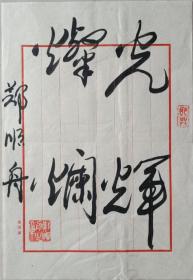 光辉
灿烂
郑顺舟